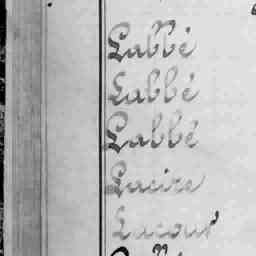 Labbé
Labbé
Labbé
Lacire
Lacour